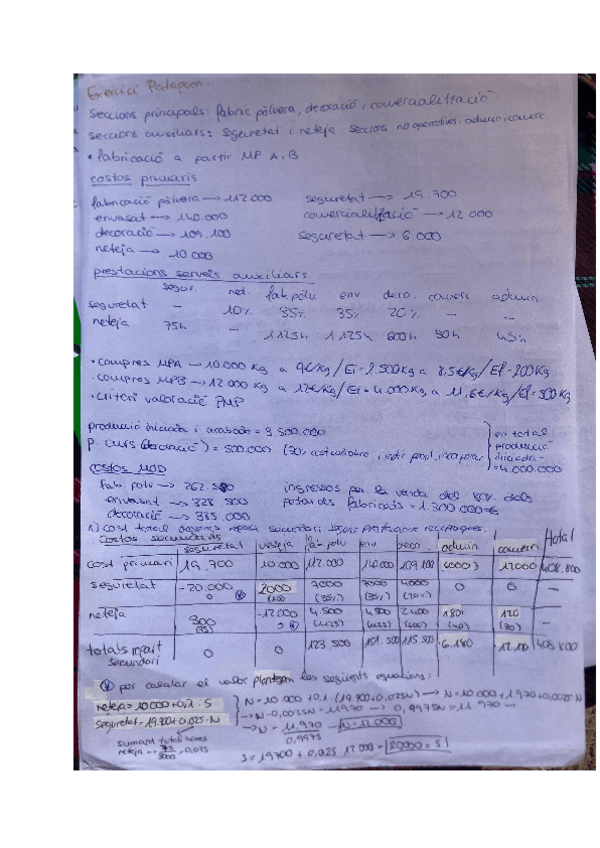 Exercici Patapum.
Seccions principals: fabric pólvora, decoració i comercialització
seccions auxiliars: seguretat i neteja seccions no operatives: admin, comerc.
• fabricació a partir MP A, B
costos primaris
fabricació pólvora → 112.000 seguretat → 19.700
envasat → 140.000 comercialització → 12.000
decoració → 109.100 seguretat → 6.000
neteja → 10.000
prestacions serveis auxiliars
segur. net. fab. pólv. env deco. comerc admin
seguretat - 10% 35% 35% 20% - -
neteja 75h - 1125h 1125h 600h 30h 45h
• compres MPA → 10.000 Kg a 9€/Kg / Ei = 2.500kg a 8,5€/Kg / Ef = 200Kg
• compres MPB → 12.000 Kg a 12€/Kg / Ei = 4.000Kg a 11,6€/Kg / Ef = 500Kg
• criteri valoració PMP
producció iniciada i acabada = 3.500.000
p. curs (decoració) = 500.000 (30%
en total producció iniciada = 4.000.000
costos MOD
fab. polv → 262.500 ingressos per la venda dels 80% dels
envasat → 328.500 petards fabricats = 1.300.000€
decoració → 385.000
costos secundaris
seguretat neteja fab polv env deco. admin comerc. total
cost primari 19.700 10.000 112.000 140.000 109.100 6000 12000 408.800
seguretat -20.000 2000 7000 (35%) 7000 (35%) 4000 (20%) 0 0 -
neteja 300 -12.000 4.500 (1125) 4.500 (1125) 2400 (600) 180 120 (30) -
totals repart secundari 0 0 123.500 151.500 115.500 6.180 12.120 408.800
per calcular el valor plantegem les següents equacions:
neteja = 10000 + 0,1 · S
seguretat = 19.700 + 0,025 · N
N = 10.000 + 0,1 · (19.700 + 0,025N) → N = 10.000 + 1970 + 0,0025 N
→ N - 0,0025N = 11970 → 0,9975N = 11.970 →
→ N = 11.970 / 0,9975 → N = 12.000
sumant total hores
neteja → 75/3000 = 0,025
S = 19700 + 0,025 · 12000 = 20000 = S